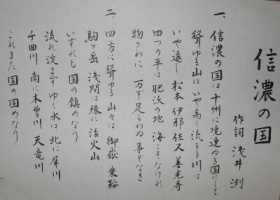 信濃の国
作詞 浅井 洌
一、信濃の国は十州に境連ぬる国にして
聳ゆる山はいや高く流るる川は
いや遠し 松本 伊那 佐久 善光寺
四つの平は肥沃の地 海こそなけれ
物さわに 万ず足らわぬ事ぞなき
二、四方に聳ゆる山々は 御嶽 乗鞍
駒ヶ岳 浅間は殊に活火山
いずれも国の鎮めなり
流れ淀まずゆく水は 北に犀川
千曲川 南に木曽川 天竜川
これまた国の固めなり